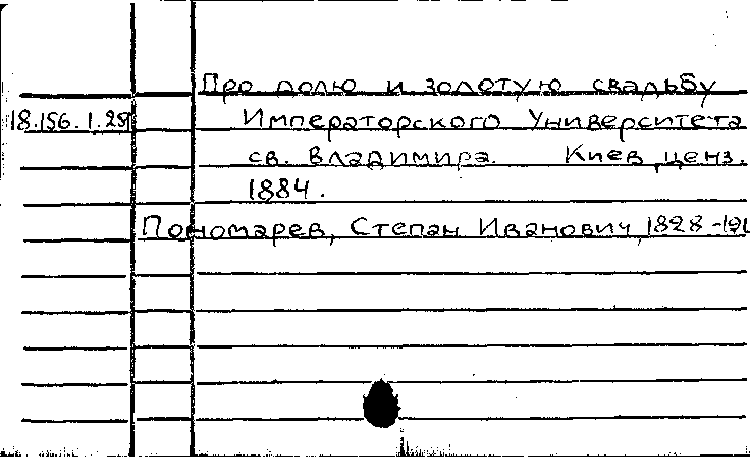 Про долю и золотую свадьбу
18.156.1.25 Императорского Университета
св. Владимира. Киев, ценз.
1884.
Пономарев, Степан Иванович, 1828-191